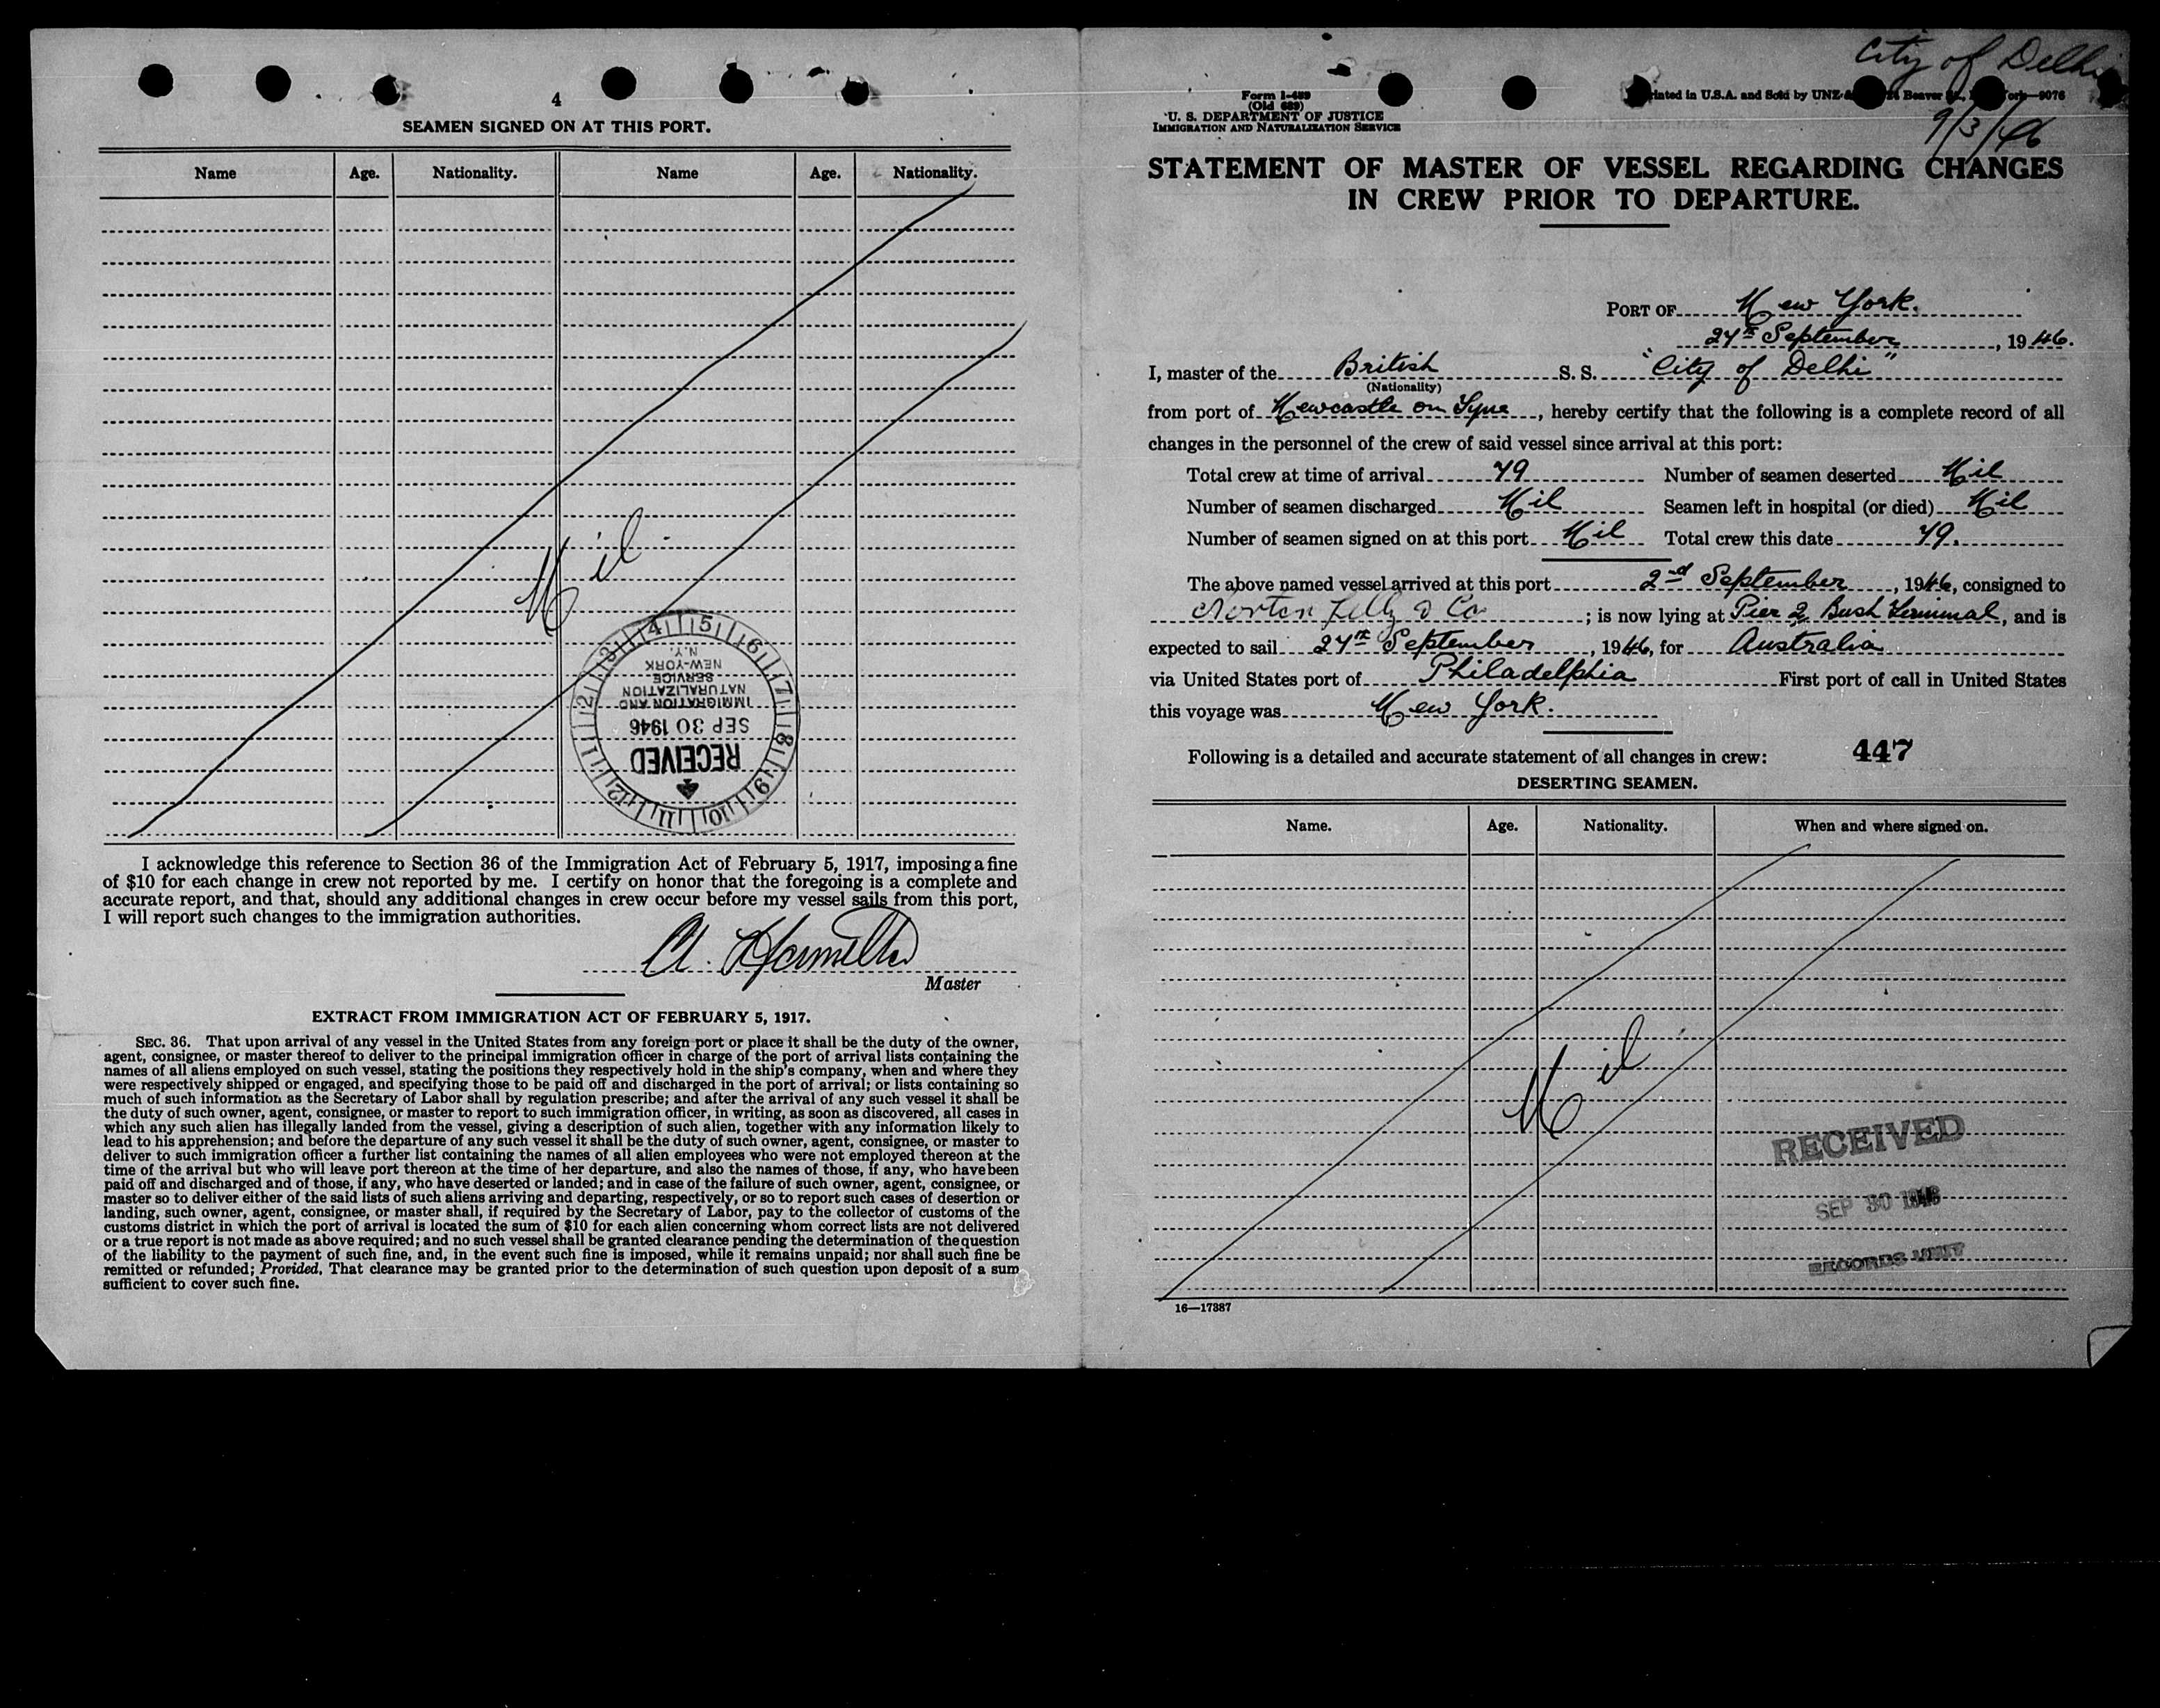 4
SEAMEN SIGNED ON AT THIS PORT.
Name Age. Nationality. Name Age. Nationality.
Nil
4 5 6 7 8 9 10 11 12 1 2 3
RECEIVED
SEP 30 1946
IMMIGRATION AND
NATURALIZATION
SERVICE
NEW-YORK
N.Y.
I acknowledge this reference to Section 36 of the Immigration Act of February 5, 1917, imposing a fine
of $10 for each change in crew not reported by me. I certify on honor that the foregoing is a complete and
accurate report, and that, should any additional changes in crew occur before my vessel sails from this port,
I will report such changes to the immigration authorities.
Master
EXTRACT FROM IMMIGRATION ACT OF FEBRUARY 5, 1917.
SEC. 36. That upon arrival of any vessel in the United States from any foreign port or place it shall be the duty of the owner,
agent, consignee, or master thereof to deliver to the principal immigration officer in charge of the port of arrival lists containing the
names of all aliens employed on such vessel, stating the positions they respectively hold in the ship's company, when and where they
were respectively shipped or engaged, and specifying those to be paid off and discharged in the port of arrival; or lists containing so
much of such information as the Secretary of Labor shall by regulation prescribe; and after the arrival of any such vessel it shall be
the duty of such owner, agent, consignee, or master to report to such immigration officer, in writing, as soon as discovered, all cases in
which any such alien has illegally landed from the vessel, giving a description of such alien, together with any information likely to
lead to his apprehension; and before the departure of any such vessel it shall be the duty of such owner, agent, consignee, or master to
deliver to such immigration officer a further list containing the names of all alien employees who were not employed thereon at the
time of the arrival but who will leave port thereon at the time of her departure, and also the names of those, if any, who have been
paid off and discharged and of those, if any, who have deserted or landed; and in case of the failure of such owner, agent, consignee, or
master so to deliver either of the said lists of such aliens arriving and departing, respectively, or so to report such cases of desertion or
landing, such owner, agent, consignee, or master shall, if required by the Secretary of Labor, pay to the collector of customs of the
customs district in which the port of arrival is located the sum of $10 for each alien concerning whom correct lists are not delivered
or a true report is not made as above required; and no such vessel shall be granted clearance pending the determination of the question
of the liability to the payment of such fine, and, in the event such fine is imposed, while it remains unpaid; nor shall such fine be
remitted or refunded; Provided, That clearance may be granted prior to the determination of such question upon deposit of a sum
sufficient to cover such fine.
City of Delhi
9/3/46
Form I-489
(Old 689)
U. S. DEPARTMENT OF JUSTICE
IMMIGRATION AND NATURALIZATION SERVICE
Printed in U.S.A. and Sold by UNZ & Beaver York—9076
STATEMENT OF MASTER OF VESSEL REGARDING CHANGES
IN CREW PRIOR TO DEPARTURE.
PORT OF New York.
27th September, 1946.
I, master of the British S. S. "City of Delhi"
(Nationality)
from port of Newcastle on Tyne, hereby certify that the following is a complete record of all
changes in the personnel of the crew of said vessel since arrival at this port:
Total crew at time of arrival 79 Number of seamen deserted Nil
Number of seamen discharged Nil Seamen left in hospital (or died) Nil
Number of seamen signed on at this port Nil Total crew this date 79.
The above named vessel arrived at this port 2nd September, 1946, consigned to
Norton Lilly & Co; is now lying at Pier 2 Bush Terminal, and is
expected to sail 27th September, 1946, for Australia
via United States port of Philadelphia First port of call in United States
this voyage was New York.
Following is a detailed and accurate statement of all changes in crew: 447
DESERTING SEAMEN.
Name. Age. Nationality. When and where signed on.
Nil
RECEIVED
SEP 30 1946
RECORDS UNIT
16—17387